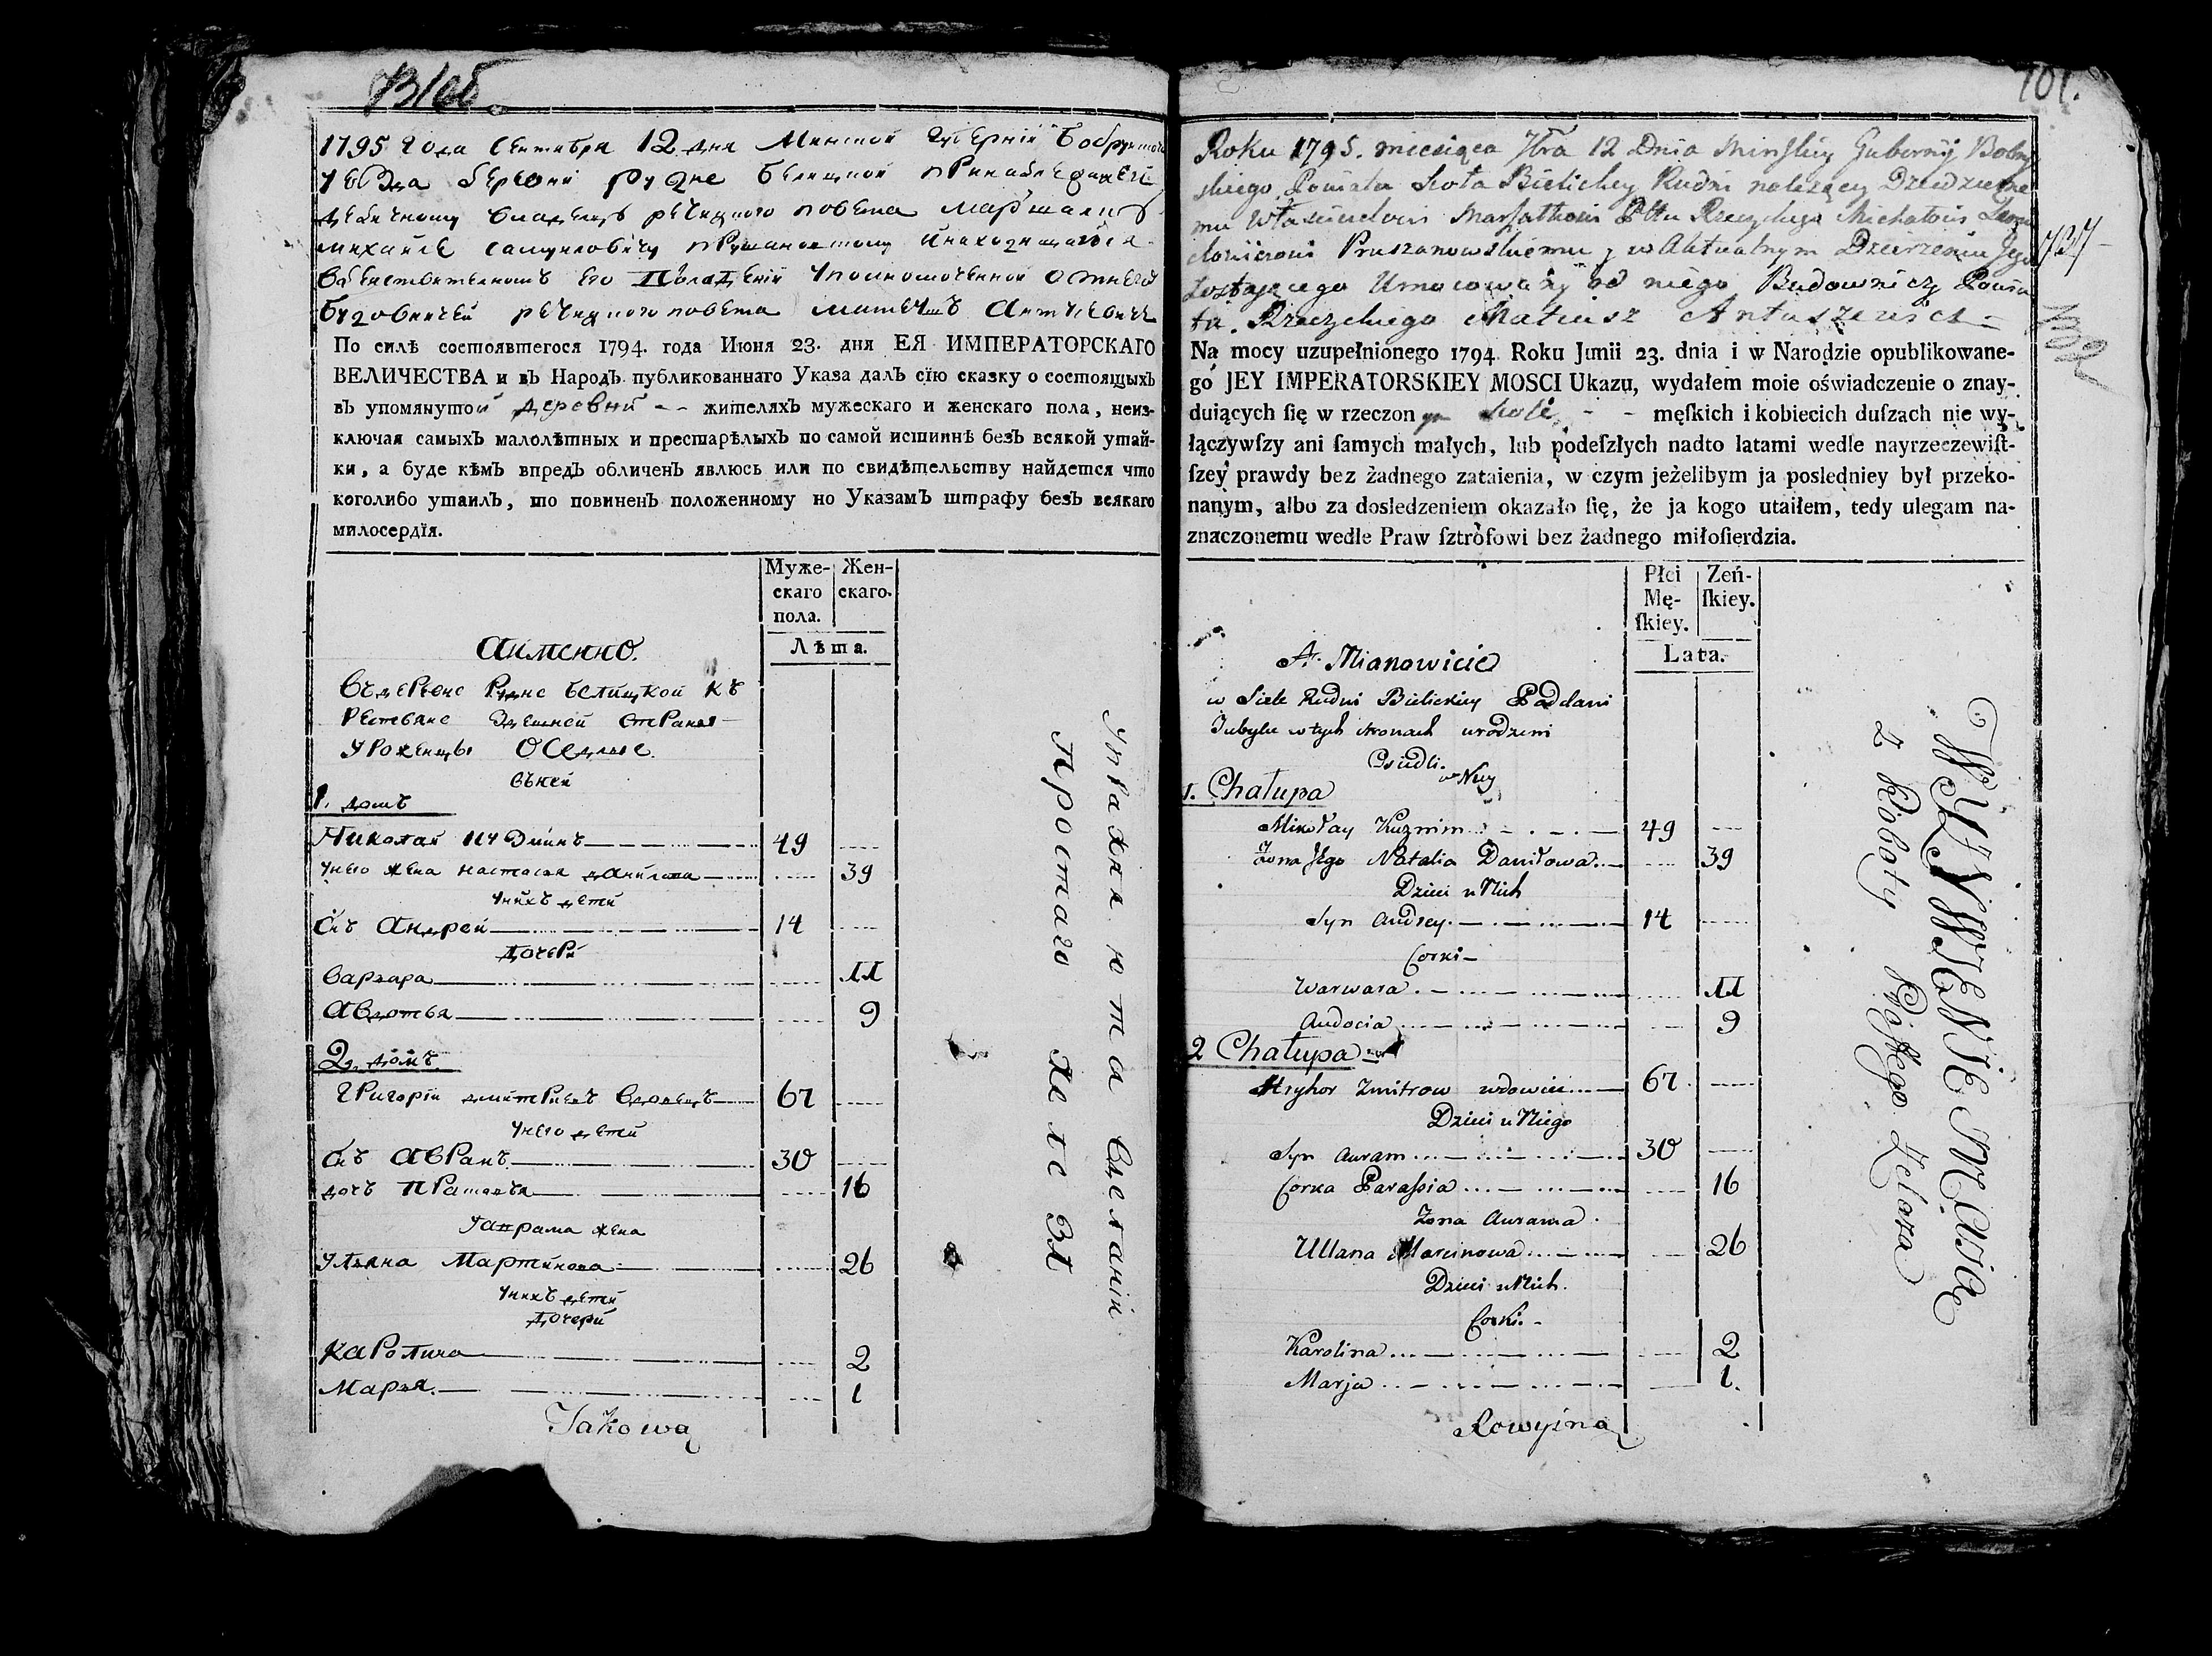 1795 года сентября 12 дня Минской губернии Бобруйского
уезда деревни Рудне Белицкой принадлежащей
дедичному владельцу речицкого повета маршалку
михайле самуиловичу прушановскому инаходящагося
вдействительномъ его владении уполномоченной отнего
будовничей речицкого повета матеушъ Антушевичъ
По силѣ состоявшегося 1794. года Июня 23. дня ЕЯ ИМПЕРАТОРСКАГО
ВЕЛИЧЕСТВА и въ Народъ публикованнаго Указа далъ сїю сказку о состоящыхъ
въ упомянутой деревни - - жителяхъ мужескаго и женскаго пола, неиз-
ключая самыхъ малолѣтныхъ и престарѣлыхъ по самой истиннѣ безъ всякой утай-
ки, а буде кѣмъ впредь обличенъ явлюсь или по свидѣтельству найдется что
коголибо утаилъ, то повиненъ положенному по Указамъ штрафу безъ всякаго
милосердїя.
Муже-
скаго
пола.
Жен-
скаго.
Лѣта.
Аимснно.
въдервне Рудне белицкой къ
Рестьяне здешней старанны
Уроженцы Оседлые.
въней
1. домъ
Николай кузминъ 49
унего жена настасья данилова 39
унихъ дети
снъ Андрей 14
дочери
варвара 11
Авдотья 9
2. домъ
Григорiй дмитриевъ вдовецъ 67
унего дети
снъ АвРамъ 30
дочъ Прасковья 16
уаврама жена
ульяна Мартинова 26
унихъ дети
дочери
КаРолина 2
Марья. 1
Takowa
Простаго железа
101.
Roku 1795. miesiąca 7bra 12 Dnia Minskiey Gubernij Bobruy
skiego Powiatu Sioła Bielickiey Rudni należącey Dziedziczne
mu Włascicielowi Marszałkowi Pttu Rzeczyckiego Michałowi Samu
elowiczowi Pruszanowskiemu y w Aktualnym Dzierżeniu Jego
zostającego Umocowany od niego Budowniczy Powia
tu Rzeczyckiego Mateusz Antuszewicz
Na mocy uzupełnionego 1794 Roku Junii 23. dnia i w Narodzie opublikowane-
go JEY IMPERATORSKIEY MOSCI Ukazu, wydałem moie oświadczenie o znay-
duiących ſię w rzeczonym Siole - - męſkich i kobiecich duſzach nie wy-
łączywſzy ani ſamych małych, lub podeſzłych nadto latami wedle nayrzeczewiſt-
ſzey prawdy bez żadnego zataienia, w czym jeżelibym ja posledniey był przeko-
nanym, albo za dosledzeniem okazało ſię, że ja kogo utaiłem, tedy ulegam na-
znaczonemu wedle Praw ſztrofowi bez żadnego miłoſierdzia.
737
Płci
Mę-
ſkiey.
Zeń-
ſkiey.
Lata.
A. Mianowicie
w Siele Rudni Bielickiey Poddani
Tubylcy w tych stronach urodzeni
Osiedli.
w Niey
1. Chałupa
Mikołay Kuzmin 49
Zona Jego Natalia Daniłowa 39
Dzieci u Nich
Syn Andrey 14
Corki
Warwara 11
Audocia 9
2 Chałupa
Hryhor Zmitrow wdowiec 67
Dzieci u Niego
Syn Auram 30
Corka Parassia 16
Zona Aurama
Ullana Marcinowa 26
Dzieci u Nich.
Corki.
Karolina 2
Marja 1.
Rowyina
z Roboty Pᷣostego Zelaza